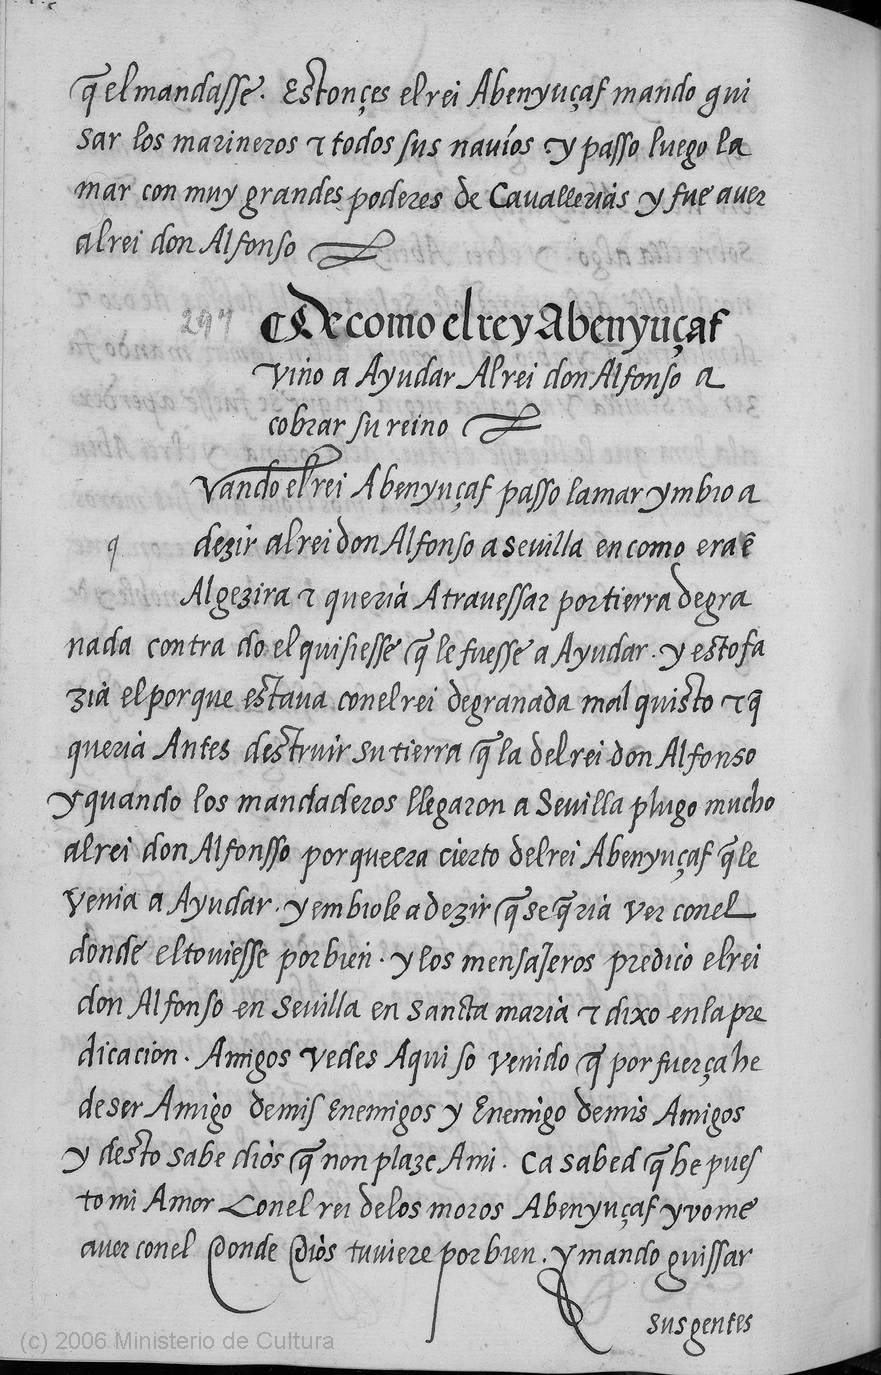 q̃ el mandasse. Estonçes el rei Abenyuçaf mando gui
sar los marineros τ todos sus nauíos y passo luego la
mar con muy grandes poderes de Cauallerias y fue auer
al rei don Alfonso
297
¶ De como el rey Abenyuçaf
vino a Ayudar Al rei don Alfonso a
cobrar su reino
Vando el rei Abenyuçaf passo la mar ymbio a
q
dezir al rei don Alfonso a seuilla en como era ẽ
Algezira τ queria Atrauessar por tierra de gra
nada contra do el quisiesse q̃ le fuesse a Ayudar. y esto fa
zia el porque estaua con el rei de granada mal quisto τ q̃
queria Antes destruir su tierra q̃ la del rei don Alfonso
y quando los mandaderos llegaron a Seuilla plugo mucho
al rei don Alfonsso por que era cierto del rei Abenyuçaf q̃ le
venia a Ayudar. y embiole a dezir q̃ se q̃ria ver con el
donde el touiesse por bien. y los mensajeros predico el rei
don Alfonso en Seuilla en sancta maria τ dixo en la pre
dicacion. Amigos vedes Aqui so venido q̃ por fuerça he
de ser Amigo de mis Enemigos y Enemigo de mis Amigos
y desto sabe dios q̃ non plaze Ami. Ca sabed q̃ he pues
to mi Amor Con el rei de los moros Abenyuçaf y vome
auer con el Donde Dios tuuiere por bien. y mando guissar
sus gentes
(c) 2006 Ministerio de Cultura